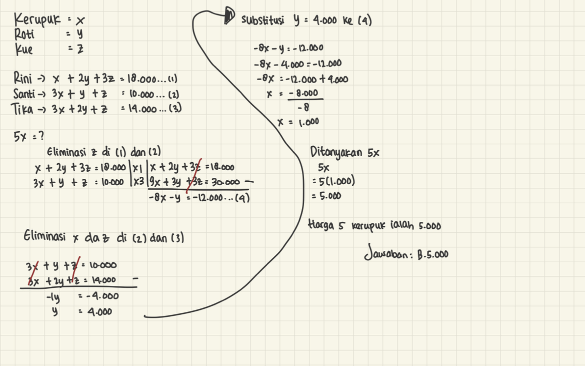 Kerupuk = x
Roti = y
Kue = z
Rini -> x + 2y + 3z = 18.000...(1)
Santi -> 3x + y + z = 10.000...(2)
Tika -> 3x + 2y + z = 14.000...(3)
5x = ?
Eliminasi z di (1) dan (2)
x + 2y + 3z = 18.000 | x1 | x + 2y + 3z = 18.000
3x + y + z = 10.000 | x3 | 9x + 3y + 3z = 30.000 -
-8x - y = -12.000...(4)
Eliminasi x da z di (2) dan (3)
3x + y + z = 10.000
3x + 2y + z = 14.000 -
-1y = -4.000
y = 4.000
Substitusi y = 4.000 ke (4)
-8x - y = -12.000
-8x - 4.000 = -12.000
-8x = -12.000 + 4.000
x = -8.000
-8
x = 1.000
Ditanyakan 5x
5x
= 5(1.000)
= 5.000
Harga 5 kerupuk ialah 5.000
Jawaban : B. 5.000